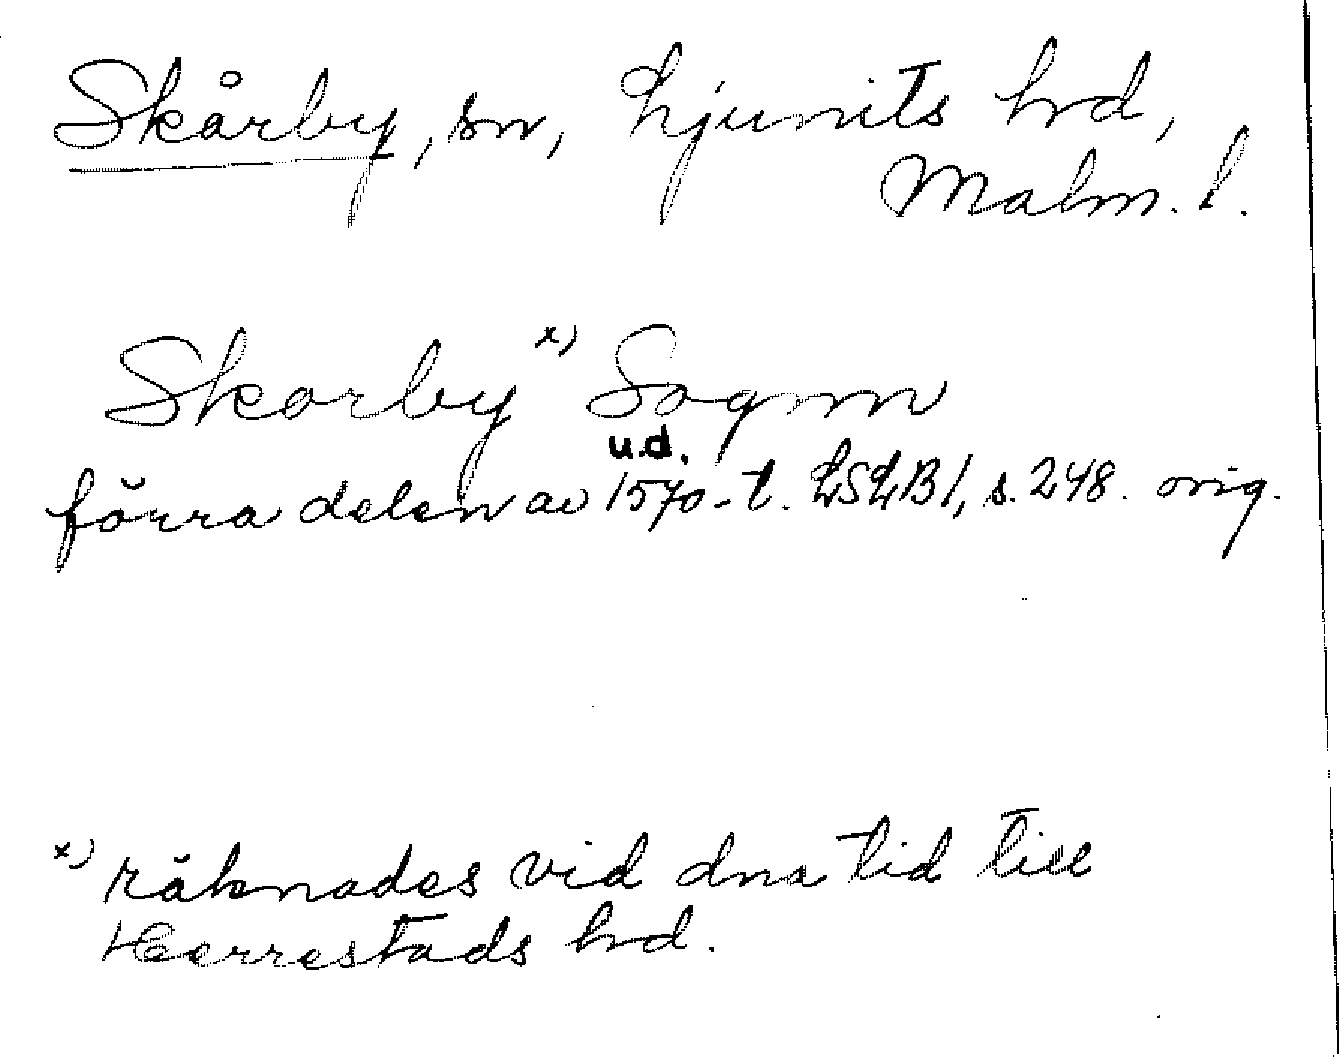 Skårby, sn, Ljunits hrd,
Malm. l.
Skorby x) Sognn
u.d.
förra delen av 1570-t. LSLB1, s. 248. orig.
x) räknades vid dna tid till
Herrestads hrd.